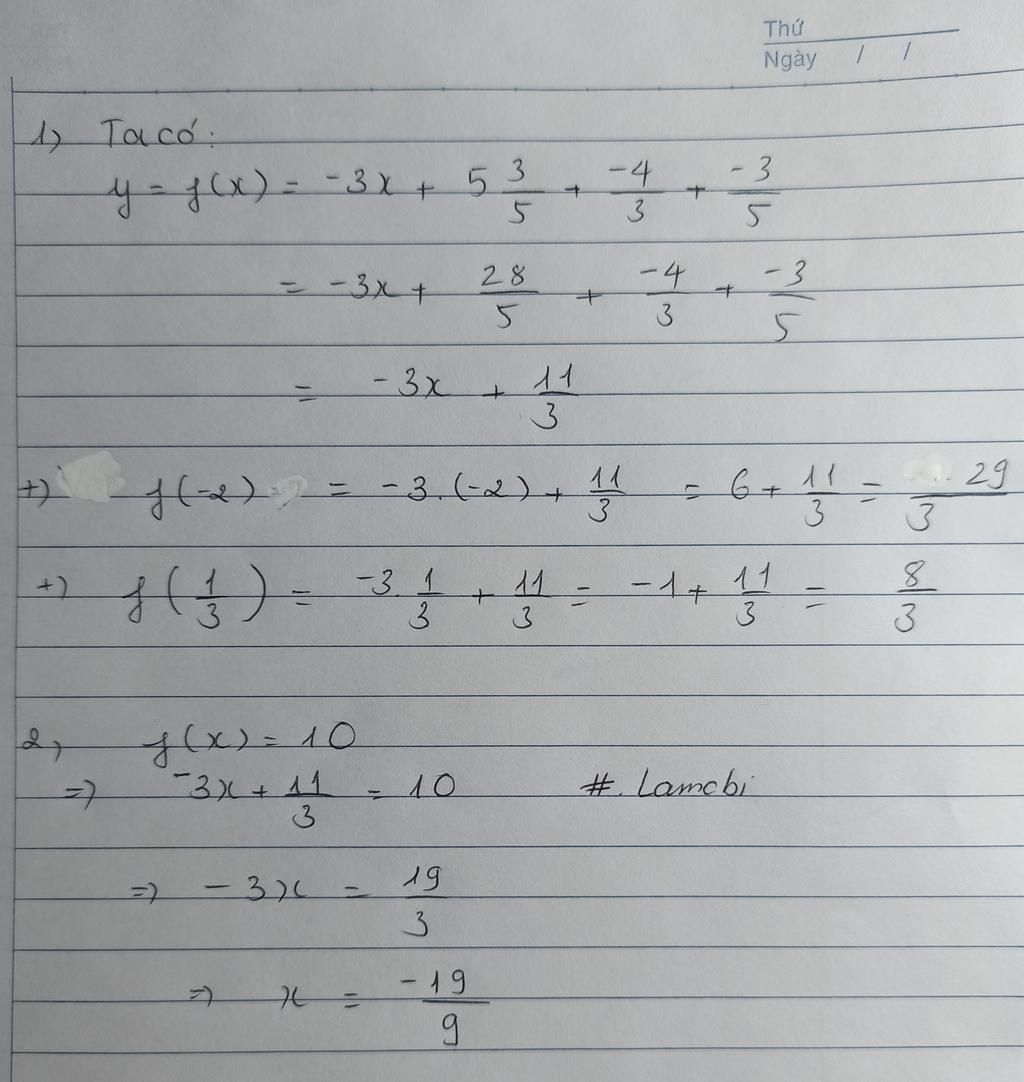 Thứ
Ngày / /
1) Ta có:
y = f(x) = -3x + 5 3/5 + -4/3 + -3/5
= -3x + 28/5 + -4/3 + -3/5
= -3x + 11/3
+) f(-2) = -3.(-2) + 11/3 = 6 + 11/3 = 29/3
+) f(1/3) = -3.1/3 + 11/3 = -1 + 11/3 = 8/3
2, f(x) = 10
=) -3x + 11/3 = 10 #. Lamcbi
=) -3x = 19/3
=) x = -19/9